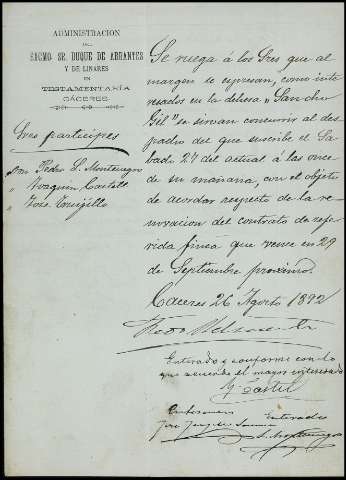 ADMINISTRACION
DEL
EXCMO. SR. DUQUE DE ABRANTES
Y DE LINARES
EN
TESTAMENTARÍA
CÁCERES
Sres partícipes
Don Pedro S. Montenegro
" Joaquin Castell
" José Trujillo
Se ruega á los Sres que al
margen se expresan, como inte-
resados en la dehesa "Sancho
Gil" se sirvan concurrir al des-
pacho del que suscribe el Sá-
bado 27 del actual á las once
de su mañana, con el objeto
de acordar respecto de la re-
novacion del contrato de refe-
rida finca que vence en 29
de Septiembre próximo.
Cáceres 26 Agosto 1892
Enterado y conforme con lo
que acuerde el mayor interesado
Enterado
S. Montenegro